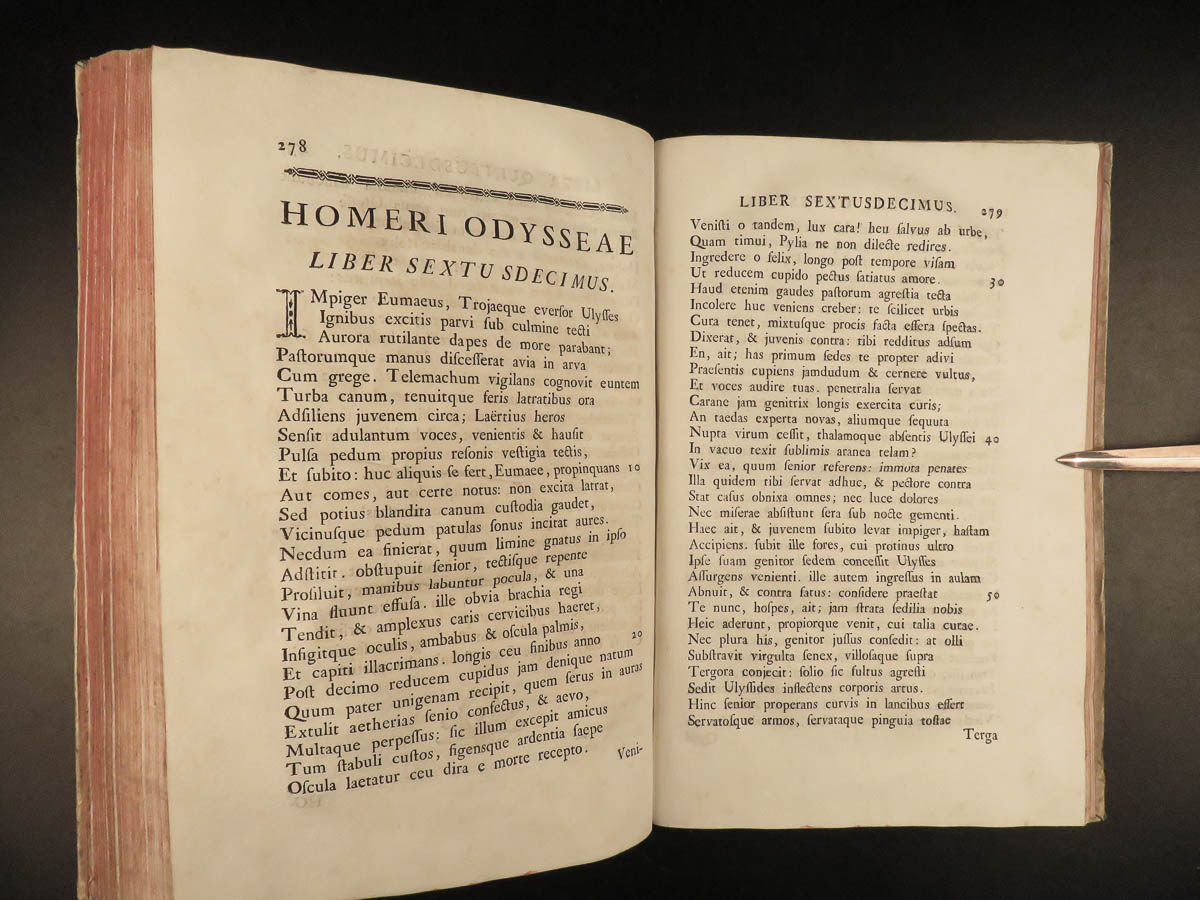 278
HOMERI ODYSSEAE
LIBER SEXTUSDECIMUS.
IMpiger Eumaeus, Trojaeque eversor Ulysses
Ignibus excitis parvi sub culmine tecti
Aurora rutilante dapes de more parabant;
Pastorumque manus discesserat avia in arva
Cum grege. Telemachum vigilans cognovit euntem
Turba canum, tenuitque feris latratibus ora
Adsiliens juvenem circa; Laërtius heros
Sensit adulantum voces, venientis & hausit
Pulsa pedum propius resonis vestigia tectis,
Et subito: huc aliquis se fert, Eumaee, propinquans 10
Aut comes, aut certe notus: non excita latrat,
Sed potius blandita canum custodia gaudet,
Vicinusque pedum patulas sonus incitat aures.
Necdum ea finierat, quum limine gnatus in ipso
Adstitit. obstupuit senior, tectisque repente
Prosiluit, manibus labuntur pocula, & una
Vina fluunt effusa. ille obvia brachia regi
Tendit, & amplexus caris cervicibus haeret,
Infigitque oculis, ambabus & oscula palmis,
Et capiti illacrimans. longis ceu finibus anno 20
Post decimo reducem cupidus jam denique natum
Quum pater unigenam recipit, quem serus in auras
Extulit aetherias senio confectus, & aevo,
Multaque perpessus: sic illum excepit amicus
Tum stabuli custos, figensque ardentia saepe
Oscula laetatur ceu dira e morte recepto.
Veni-
LIBER SEXTUSDECIMUS. 279
Venisti o tandem, lux cara! heu salvus ab urbe,
Quam timui, Pylia ne non dilecte redires.
Ingredere o felix, longo post tempore visam
Ut reducem cupido pectus satiatus amore. 30
Haud etenim gaudes pastorum agrestia tecta
Incolere huc veniens creber: te scilicet urbis
Cura tenet, mixtusque procis facta effera spectas.
Dixerat, & juvenis contra: tibi redditus adsum
En, ait; has primum sedes te propter adivi
Praesentis cupiens jamdudum & cernere vultus,
Et voces audire tuas. penetralia servat
Carane jam genitrix longis exercita curis;
An taedas experta novas, aliumque sequuta
Nupta virum cessit, thalamoque absentis Ulyssei 40
In vacuo texit sublimis aranea telam?
Vix ea, quum senior referens: immota penates
Illa quidem tibi servat adhuc, & pectore contra
Stat casus obnixa omnes; nec luce dolores
Nec miserae absistunt sera sub nocte gementi.
Haec ait, & juvenem subito levat impiger, hastam
Accipiens. subit ille fores, cui protinus ultro
Ipse suam genitor sedem concessit Ulysses
Assurgens venienti. ille autem ingressus in aulam
Abnuit, & contra fatus: considere praestat 50
Te nunc, hospes, ait; jam strata sedilia nobis
Heic aderunt, propiorque venit, cui talia curae.
Nec plura his, genitor jussus consedit: at olli
Substravit virgulta senex, villosaque supra
Tergora conjecit: solio sic fultus agresti
Sedit Ulyssides inflectens corporis artus.
Hinc senior properans curvis in lancibus effert
Servatosque armos, servataque pinguia tostae
Terga